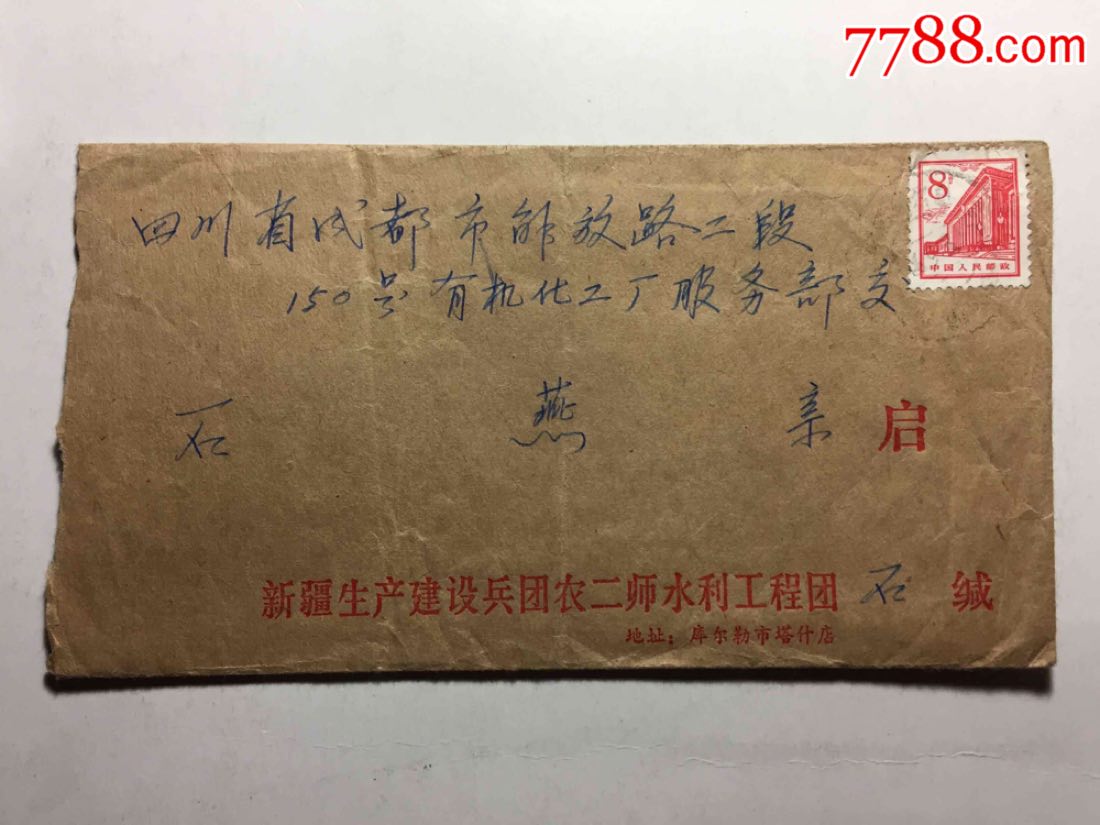 7788.com
8分
中国人民邮政
四川省成都市解放路二段
150号有机化工厂服务部交
石燕亲启
新疆生产建设兵团农二师水利工程团石缄
地址：库尔勒市塔什店